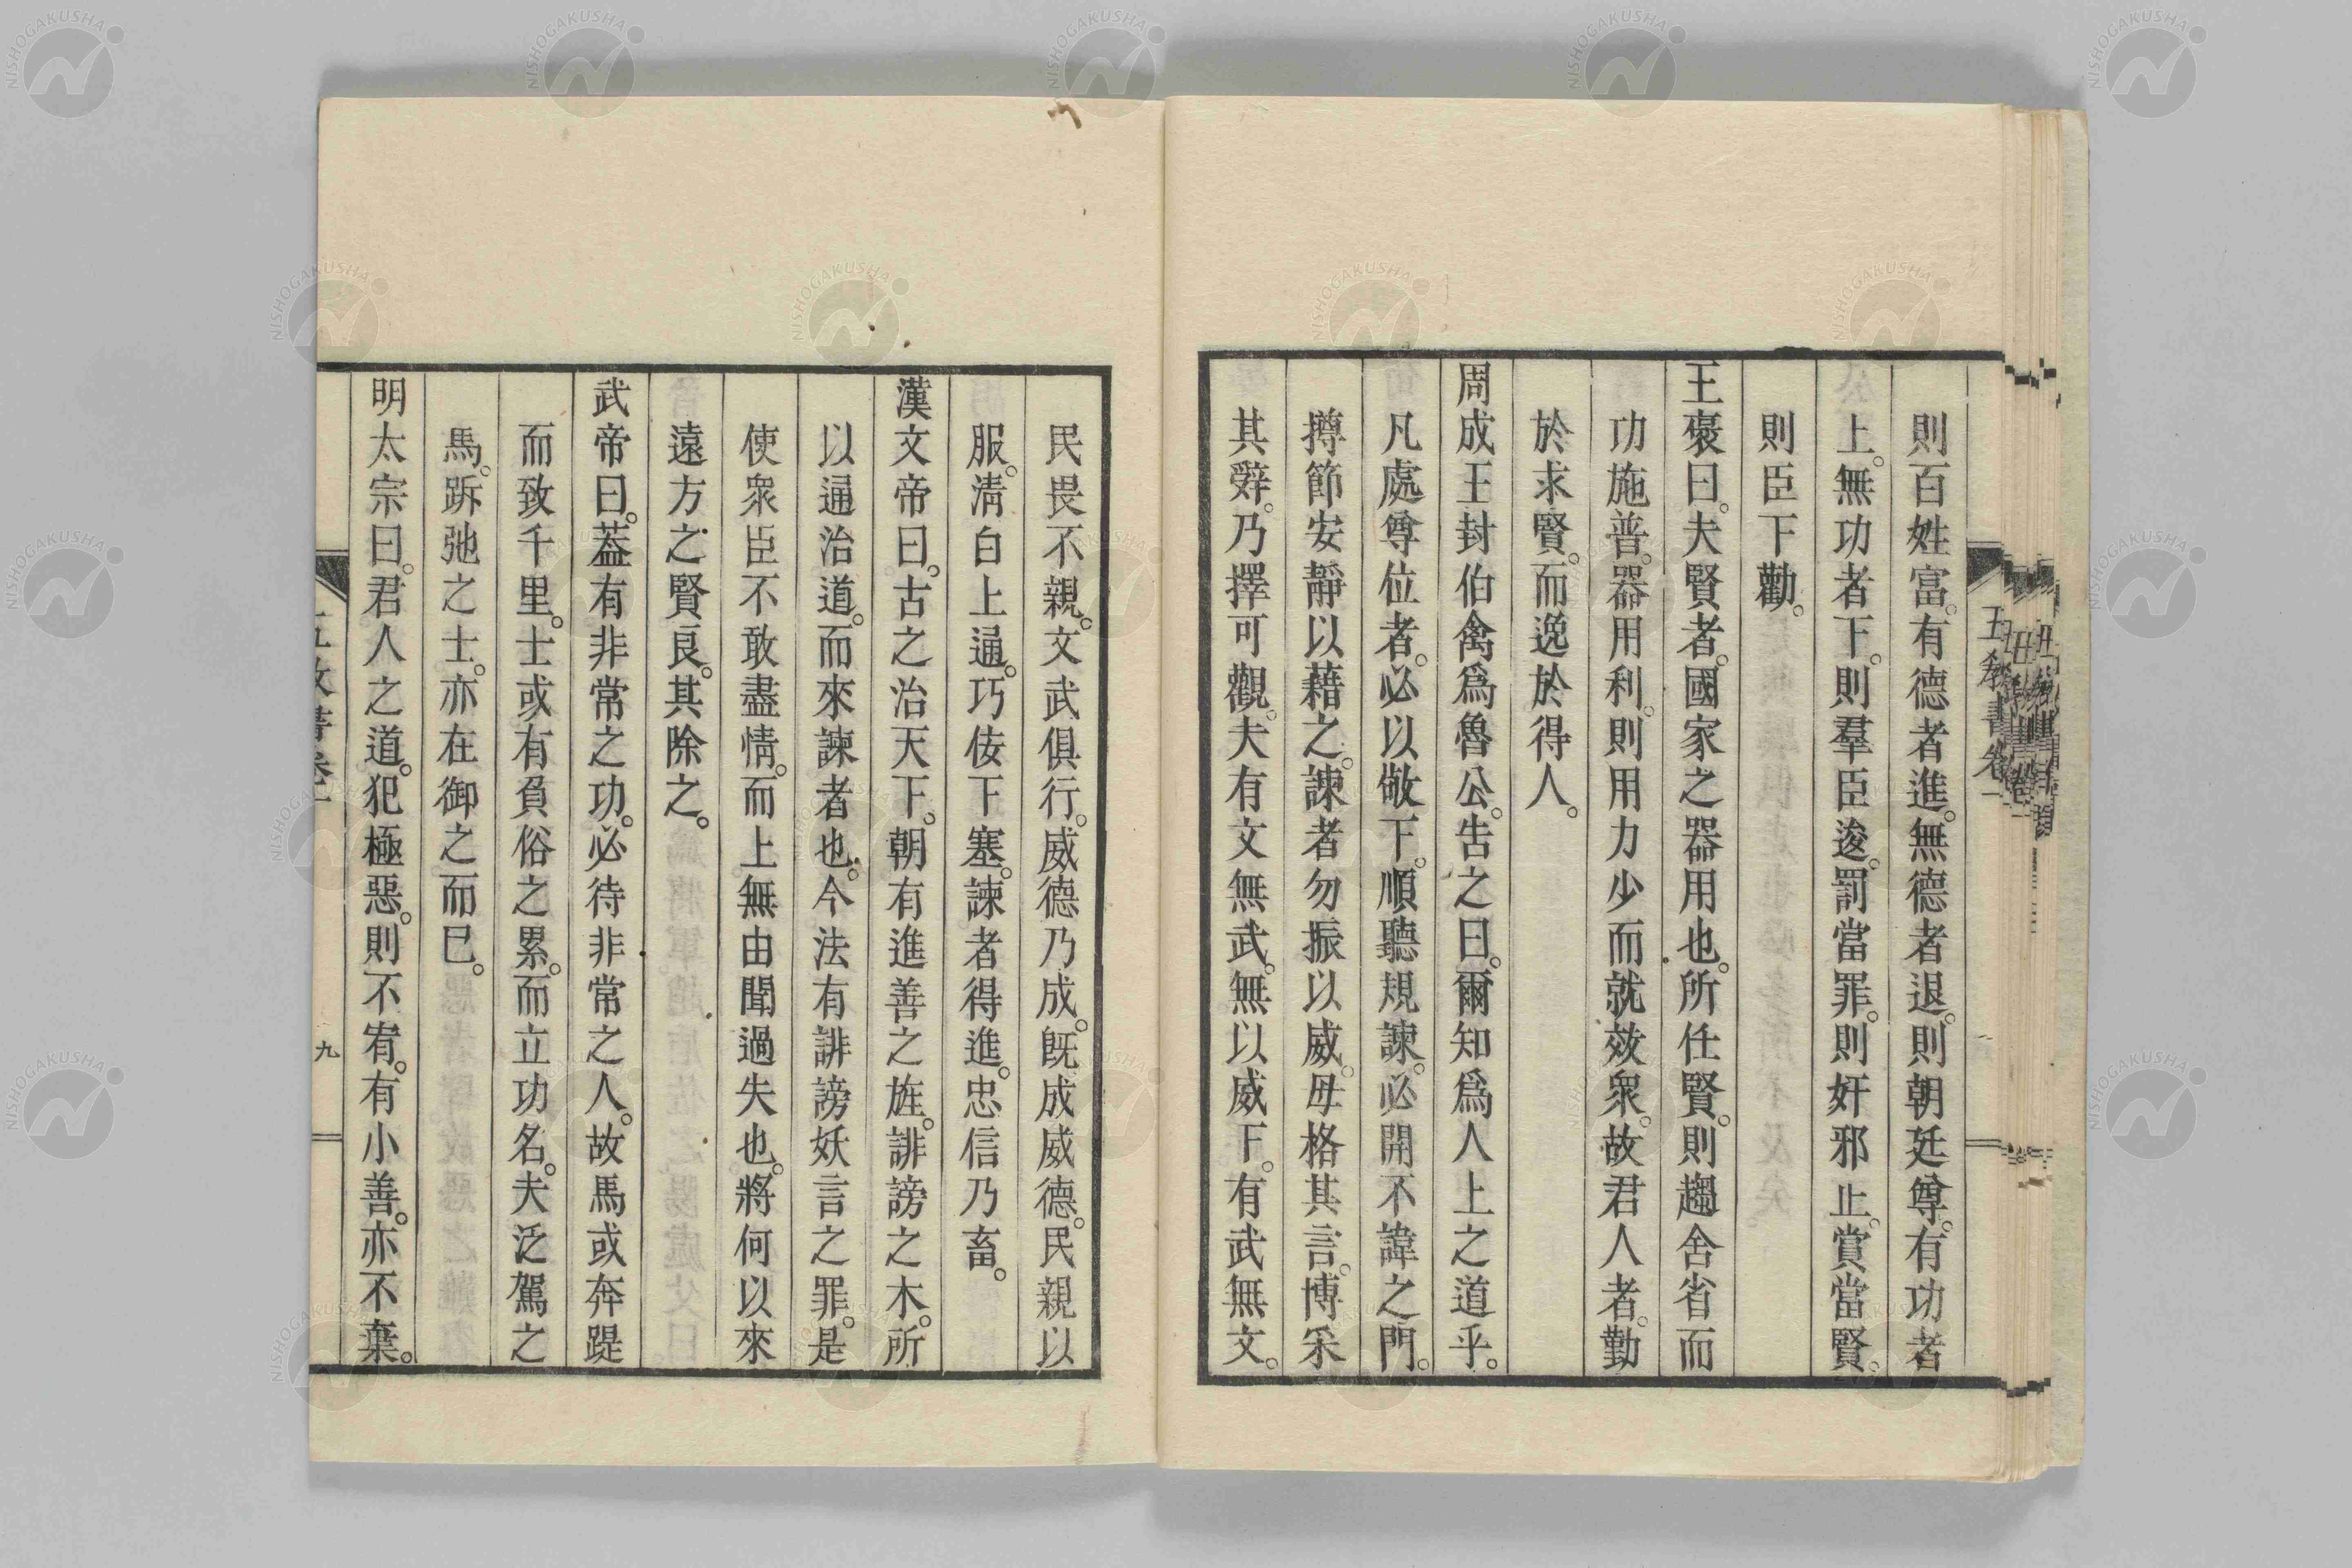 五教書卷一
則百姓富。有德者進。無德者退。則朝廷尊。有功者
上。無功者下。則羣臣逡。罰當罪。則奸邪止。賞當賢。
則臣下勸。
王褒曰。夫賢者。國家之器用也。所任賢。則趨舍省而
功施普。器用利。則用力少而就效衆。故君人者。勤
於求賢。而逸於得人。
周成王封伯禽爲魯公。吿之曰。爾知爲人上之道乎。
凡處尊位者。必以敬下。順聽規諫。必開不諱之門。
撙節安靜以藉之。諫者勿振以威。毋格其言。博采
其辭。乃擇可觀。夫有文無武。無以威下。有武無文。
民畏不親。文武俱行。威德乃成。旣成威德。民親以
服。淸白上通。巧佞下塞。諫者得進。忠信乃畜。
漢文帝曰。古之治天下。朝有進善之旌。誹謗之木。所
以通治道。而來諫者也。今法有誹謗妖言之罪。是
使衆臣不敢盡情。而上無由聞過失也。將何以來
遠方之賢良。其除之。
武帝曰。蓋有非常之功。必待非常之人。故馬或奔踶
而致千里。士或有負俗之累。而立功名。夫泛駕之
馬。跅弛之士。亦在御之而已。
明太宗曰。君人之道。犯極惡。則不宥。有小善。亦不棄。
九
NISHOGAKUSHA